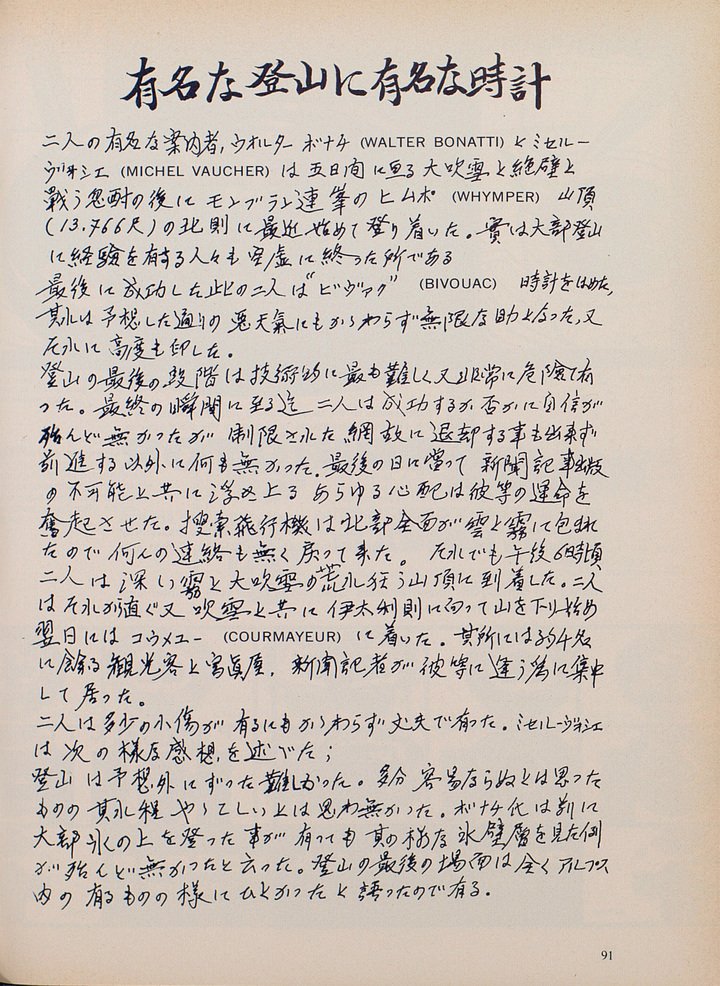 有名な登山に有名な時計
二人の有名な案内者，ウオルター ボナチ (WALTER BONATTI) と ミセルー
ヴオシエ (MICHEL VAUCHER) は 五日間に至る 大吹雪と絶壁と
戦う 後に モンブラン連峯の ヒムポ (WHYMPER) 山頂
(13.766尺) の北側に最近始めて登り着いた。實は大部登山
に経験を有する人々も空虚に終った所である
最後に成功した此の二人は“ビヴァク” (BIVOUAC) 時計をはめた，
其れは予想した通りの悪天氣にもかゝわらず無限な助となった，又
それに高度も印した。
登山の最後の段階は技術的に最も難しく又非常に危険で有
った。最終の瞬間に至る迄 二人は成功するか否かに自信が
殆んど無かったが 制限された網故に退却する事も出来ず
前進する以外に何も無かった．最後の日に當って 新聞記事出版
の不可能と共に浮び上る あらゆる心配は彼等の運命を
奮起させた。捜索飛行機は北部全面が雲と霧に包まれ
たので何んの連絡も無く戻って来た。 それでも午後6時頃
二人は深い霧と大吹雪の荒れ狂う山頂に到着した．二人
はそれから直ぐ又 吹雪と共に 伊太利側に向って山を下り始め
翌日には コウメユー (COURMAYEUR) に着いた．其所には約千名
に余る観光客と寫眞屋．新聞記者が彼等に逢う為に集中
して居った。
二人は多少の小傷が有るにもかゝわらず丈夫で有った．ミセルーヴォシエ
は次の様な感想を述べた；
登山は予想外にずった難しかった。多分 容易ならぬとは思った
ものの其れ程 やゝこしいとは思わ無かった．ボナチ氏は前に
大部氷の上を登った事が有っても其の様な氷壁層を見た例
が殆んど無かったと云った。登山の最後の場面は全くアルプス
内の有るものの様にひどかったと語ったので有る．
91